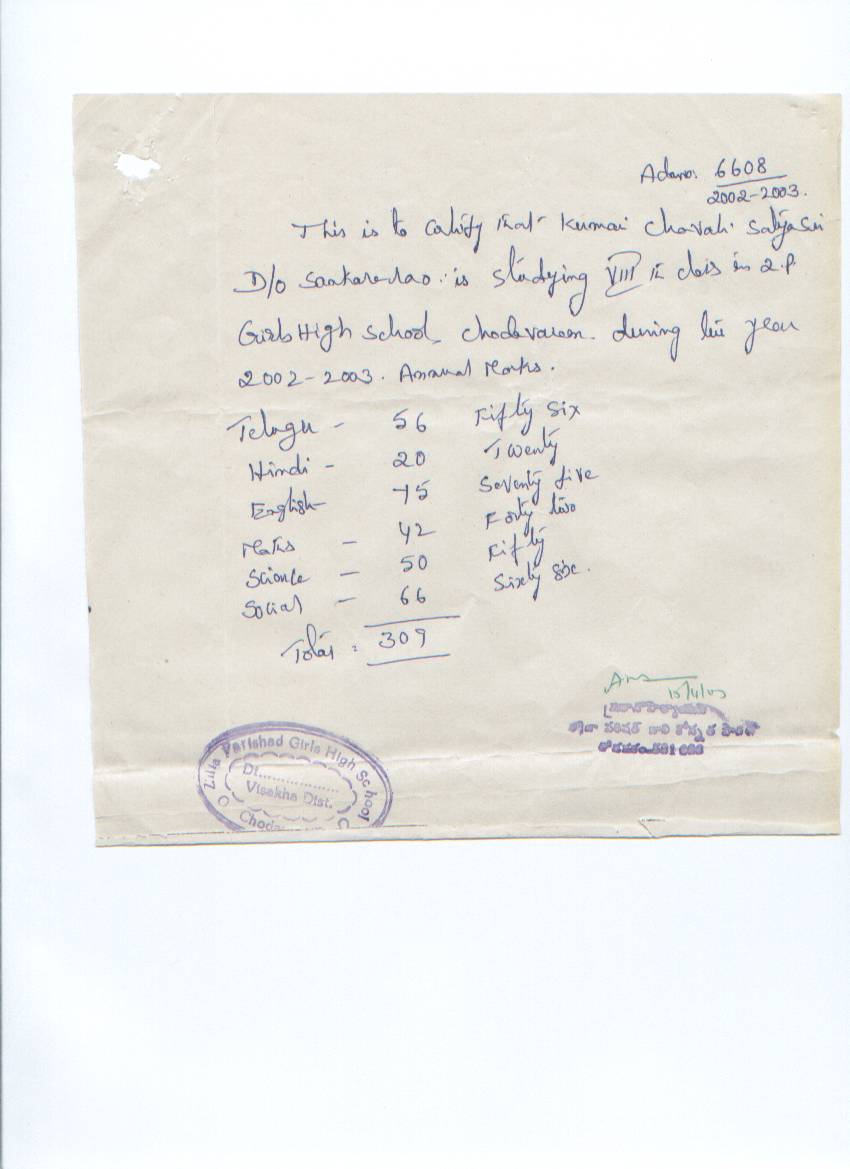 Adno. 6608
2002-2003.
This is to certify that Kumari Chavali Satya Sri
D/o Sankararao. is studying VIII th class in Z.P.
Girls High School, Chodavaram. during the year
2002-2003. Annual Marks.
Telugu - 56 Fifty Six
Hindi - 20 Twenty
English - 75 Seventy five
Maths - 42 Forty two
Science - 50 Fifty
Social - 66 Sixty six.
Total = 309
15/4/03
Zilla Parishad Girls High School
Dt..................
Visakha Dist.